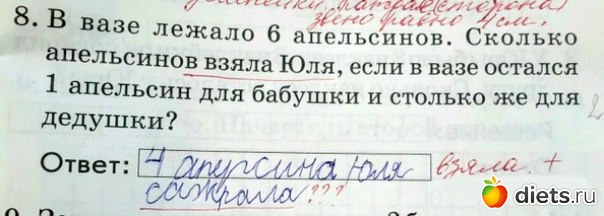 звено равно 4 см.
8. В вазе лежало 6 апельсинов. Сколько
апельсинов взяла Юля, если в вазе остался
1 апельсин для бабушки и столько же для
дедушки?
Ответ: 4 апурсина Юля взяла. +
сажрала???
diets.ru